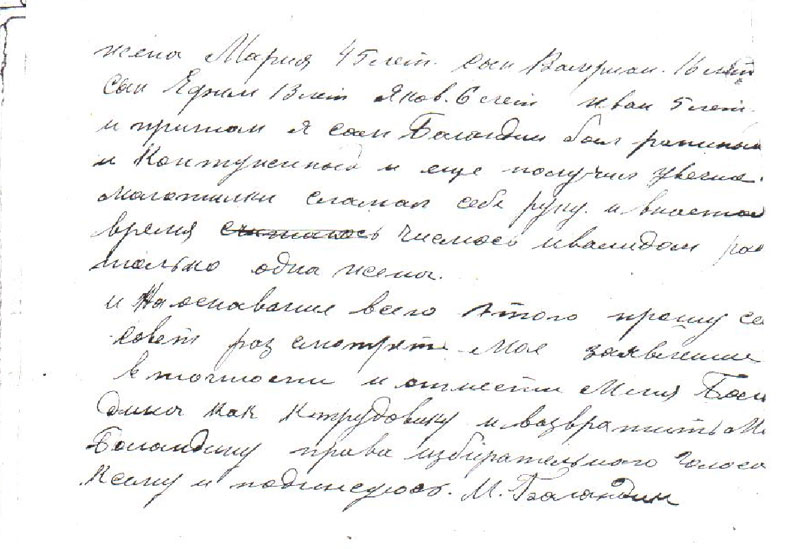 жена Мария 45 лет. сын Валериан. 16 лет
сын Ефим 13 лет Яков. 6 лет Иван 5 лет.
и притом я сам Баландин был раниный
и Контуженный и еще получил увечие.
молотилки сламал себе руку. и внастоя
время считаюсь числюсь инвалидом раб
только одна жена.
и На оснавание всего этого прошу се
совет разсмотреть Мое заявление
в точности и отнести Меня Бала
дина как Ктрудовику и возвратить М
Баландину права избирательного голоса
К сему и подписуюсь. М. Баландин